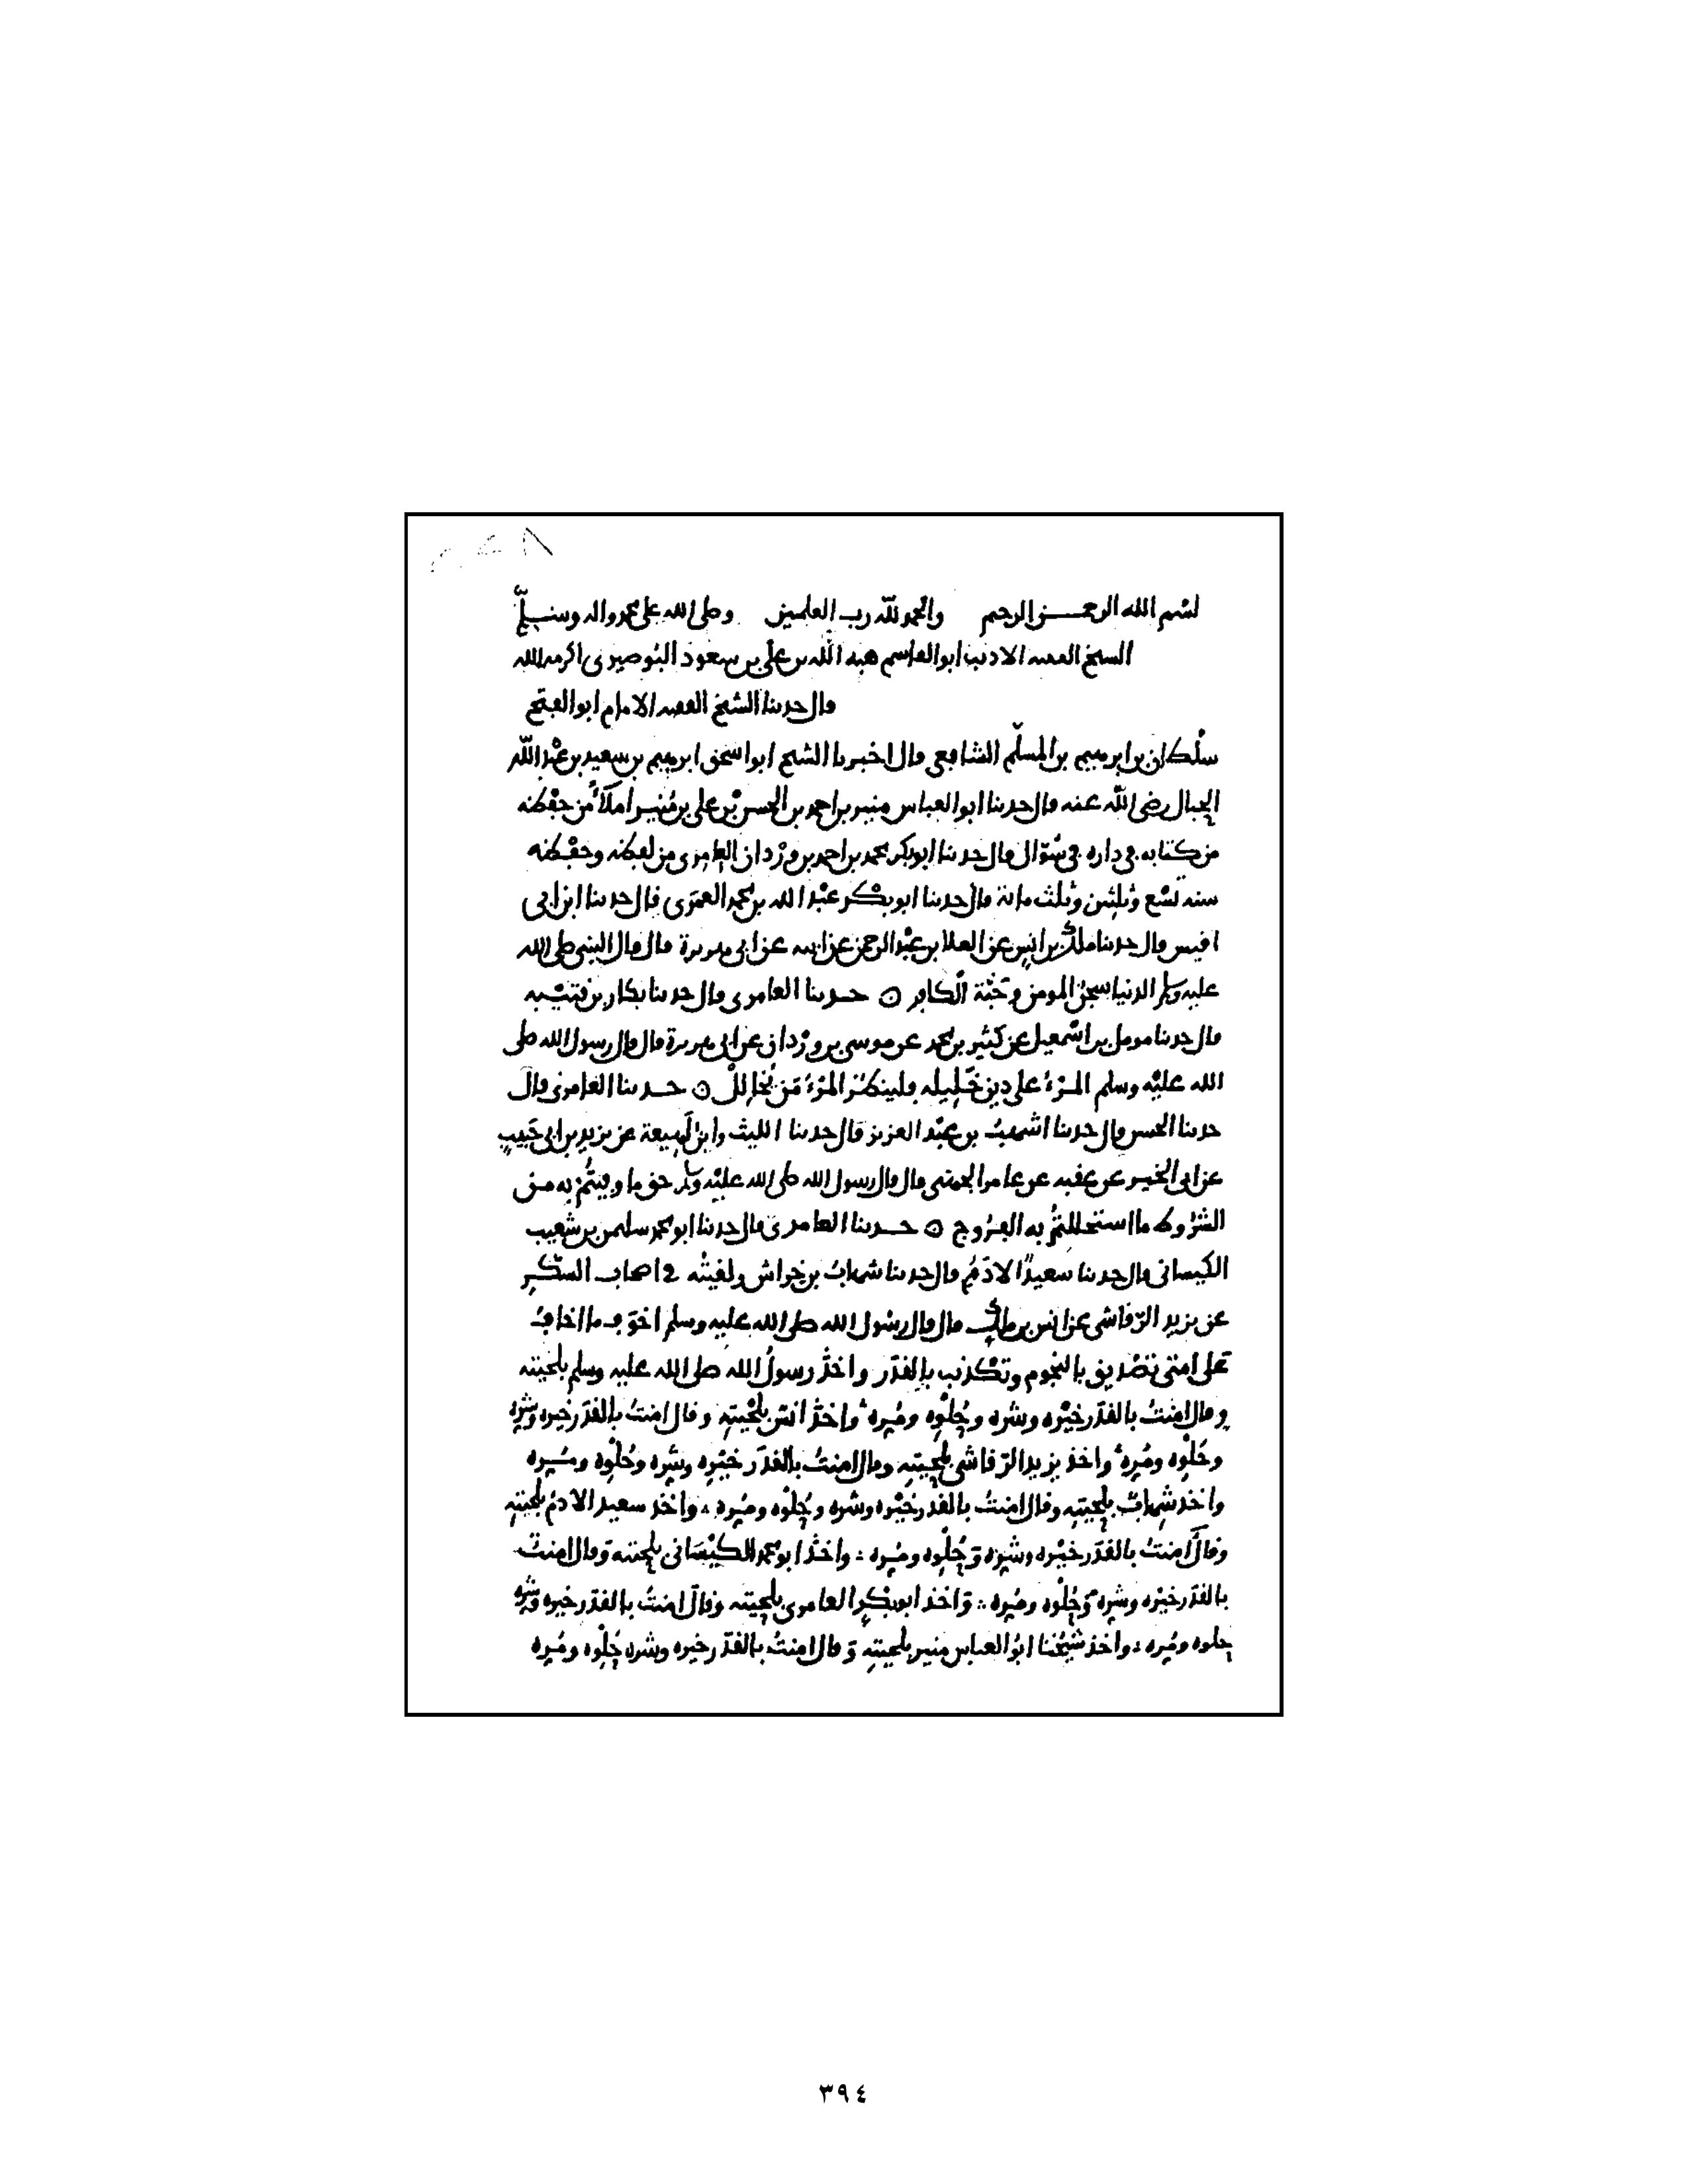 بسم الله الرحمن الرحيم والحمد لله رب العلمين وصلى الله على محمد واله وسلم
الشيخ الفقيه الاديب ابو القاسم هبة الله بن علي بن سعود البوصيري اكرمه الله
قال حدثنا الشيخ الفقيه الامام ابو الفتح
سلطان بن ابرهيم بن المسلم الشافعي قال اخبرنا الشيخ ابو اسحق ابرهيم بن سعيد بن عبد الله
الحبال رضي الله عنه قال حدثنا ابو العباس منير بن احمد بن الحسن بن علي بن منير املاً من حفظه
من كتابه في داره في شوال قال حدثنا ابو بكر محمد بن احمد بن وردان العامري من لفظه وحفظه
سنه تسع وثلثين وثلث مائة قال حدثنا ابو بكر عبد الله بن محمد العمري قال حدثنا ابن ابي
اويس قال حدثنا ملك بن انس عن العلا بن عبد الرحمن عن ابيه عن ابي هريرة قال قال النبي صلى الله
عليه وسلم الدنيا سجن المومن وجنة الكافر ه حدثنا العامري قال حدثنا بكار بن قتيبه
قال حدثنا مومل بن اسمعيل عن كثير بن محمد عن موسى بن وردان عن ابي هريرة قال قال رسول الله صلى
الله عليه وسلم المرء على دين خليله فلينظر المرء من يخالل ه حدثنا العامري قال
حدثنا الحسن قال حدثنا اشهب بن عبد العزيز قال حدثنا الليث وابن لهيعة عن يزيد بن ابي حبيب
عن ابي الخير عن عقبه عن عامر الجهني قال قال رسول الله صلى الله عليه وسلم حق ما وفيتم به من
الشروط ما استحللتم به الفروج ه حدثنا العامري قال حدثنا ابو محمد سليمن بن شعيب
الكيساني قال حدثنا سعيد الادم قال حدثنا شهاب بن خراش ولقيته في اصحاب السكر
عن يزيد الرقاشي عن انس بن ملك قال قال رسول الله صلى الله عليه وسلم اخوف ما اخاف
على امتي تصديق بالنجوم وتكذيب بالقدر واخذ رسول الله صلى الله عليه وسلم بلحيته
وقال امنت بالقدر خيره وشره وحلوه ومره واخذ انس بلحيته وقال امنت بالقدر خيره وشره
وحلوه ومره واخذ يزيد الرقاشي بلحيته وقال امنت بالقدر خيره وشره وحلوه ومره
واخذ شهاب بلحيته وقال امنت بالقدر خيره وشره وحلوه ومره واخذ سعيد الادم بلحيته
وقال امنت بالقدر خيره وشره وحلوه ومره واخذ ابو محمد الكيساني بلحيته وقال امنت
بالقدر خيره وشره وحلوه ومره واخذ ابو بكر العامري بلحيته وقال امنت بالقدر خيره وشره
حلوه ومره واخذ شيخنا ابو العباس منير بلحيته وقال امنت بالقدر خيره وشره حلوه ومره
٣٩٤